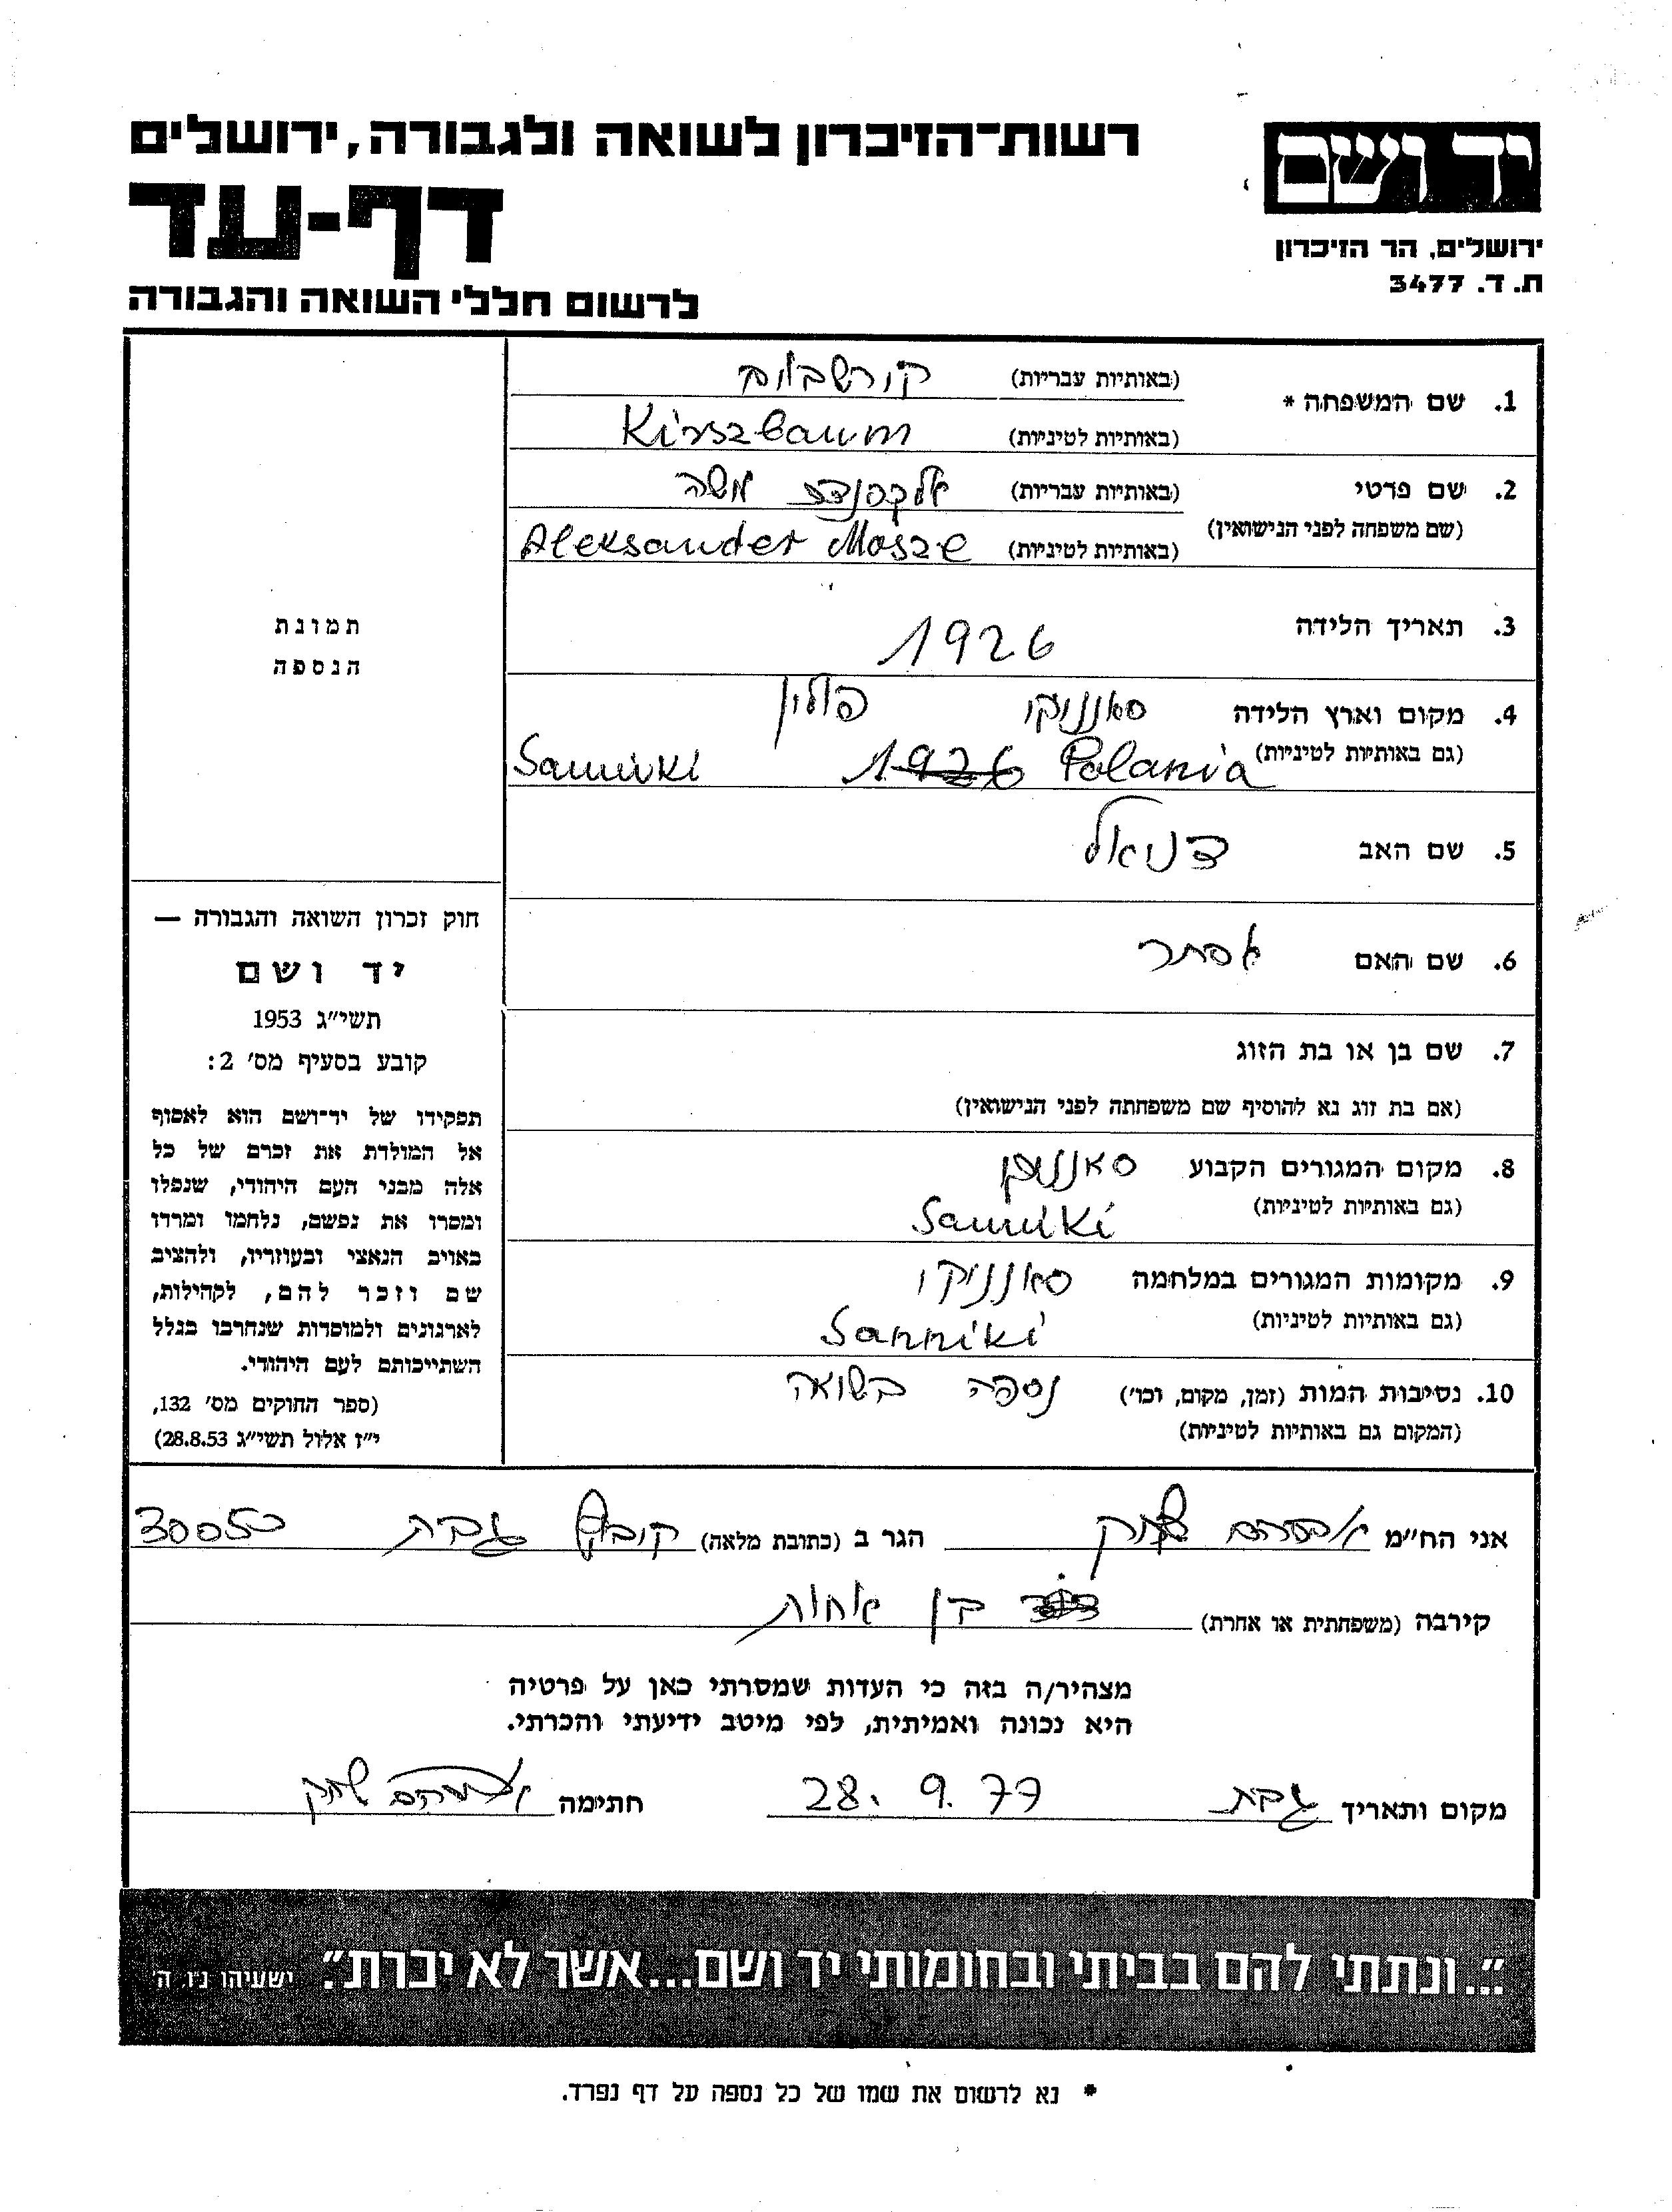 רשות־הזיכרון לשואה ולגבורה, ירושלים
יד ושם
דף-עד
ירושלים, הר הזיכרון
ת. ד. 3477
לרשום חללי השואה והגבורה
1. שם המשפחה * (באותיות עבריות) קירשבוים
(באותיות לטיניות) Kirszbaum
2. שם פרטי (באותיות עבריות) אלכסנדר משה
(שם משפחה לפני הנישואין) (באותיות לטיניות) Aleksander Mosze
3. תאריך הלידה 1926
4. מקום וארץ הלידה סאנניקי פולין
(גם באותיות לטיניות) Sanniki 1926 Polania
5. שם האב דניאל
6. שם האם אסתר
7. שם בן או בת הזוג
(אם בת זוג נא להוסיף שם משפחתה לפני הנישואין)
8. מקום המגורים הקבוע סאנניקי
(גם באותיות לטיניות) Sanniki
9. מקומות המגורים במלחמה סאנניקי
(גם באותיות לטיניות) Sanniki
10. נסיבות המות (זמן, מקום, וכו') נספה בשואה
(המקום גם באותיות לטיניות)
תמונת
הנספה
חוק זכרון השואה והגבורה —
יד ושם
תשי״ג 1953
קובע בסעיף מס' 2:
תפקידו של יד־ושם הוא לאסוף
אל המולדת את זכרם של כל
אלה מבני העם היהודי, שנפלו
ומסרו את נפשם, נלחמו ומרדו
באויב הנאצי ובעוזריו, ולהציב
שם וזכר להם, לקהילות,
לארגונים ולמוסדות שנחרבו בגלל
השתייכותם לעם היהודי.
(ספר החוקים מס' 132,
י״ז אלול תשי״ג 28.8.53)
אני הח״מ אברהם הגר ב (כתובת מלאה) קיבוץ גבת 30050
קירבה (משפחתית או אחרת) בן אחות
מצהיר/ה בזה כי העדות שמסרתי כאן על פרטיה
היא נכונה ואמיתית, לפי מיטב ידיעתי והכרתי.
מקום ותאריך גבת 28. 9. 77 חתימה אברהם
״...ונתתי להם בביתי ובחומותי יד ושם...אשר לא יכרת״. ישעיהו נ״ו, ה'
* נא לרשום את שמו של כל נספה על דף נפרד.